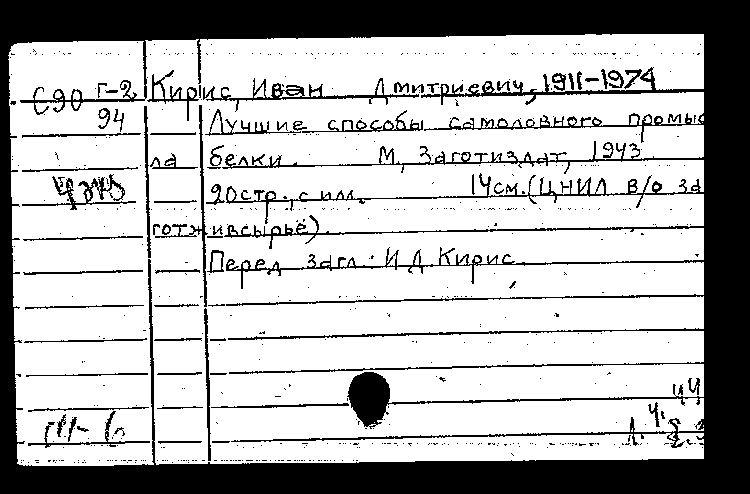 С90 Г-2 Кирис, Иван Дмитриевич, 1911-1974
94 Лучшие способы самоловного промыс
ла белки. М, Заготиздат, 1943
20стр., с илл. 14см. (ЦНИЛ в/о за
готживсырьё).
Перед загл: И Д Кирис.